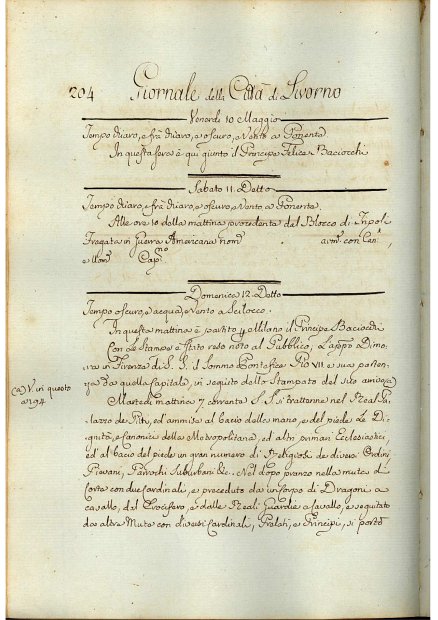 204 Giornale della Città di Livorno
Venerdì 10 Maggio
Tempo chiaro, e frà chiaro, e oscuro, e Vento a Ponente
In questa sera è qui giunto il Principe Felice Baciocchi
Sabato 11. Detto
Tempo chiaro, e frà chiaro, e oscuro, e Vento a Ponente.
Alle ore 10 della mattina procedente dal Blocco di
Fregata in Guerra Americana nom.ta arm.ta con Cen.
e Uom. Cap.no
Domenica 12. Detto
Tempo oscuro, e acqua, e Vento a Scilocco.
In questa mattina è partito p Milano il Principe Baciocchi
Con le Stampe è stato reso noto al Pubblico, L'appo Dimo,,
ra in Firenze di S. S. il Sommo Pontefice Pio VII e sua parten,,
za da quella Capitale, in seguito dello Stampato del sito
(a) V. in questo
a 194
Martedì mattina 7 corrente S. S. si trattenne nel Real Pa,,
lazzo de Pitti, ed ammise al bacio delle mano, e del piede Le Di,,
gnità, e Canonici della Metropolitana, ed altri primari Ecclesiastici,
ed al bacio del piede un gran numero di Religiosi de diversi Ordini
Piovani, Parrochi Suburbani &c. Nel dopo pranzo nella muta di
Corte con due Cardinali, e preceduto da un Corpo di Dragoni a
cavallo, dal Crocifero, e dalle Reali Guardie a Cavallo, e seguitato
da altre Mute con diversi Cardinali, Prelati, e Principi, si portò